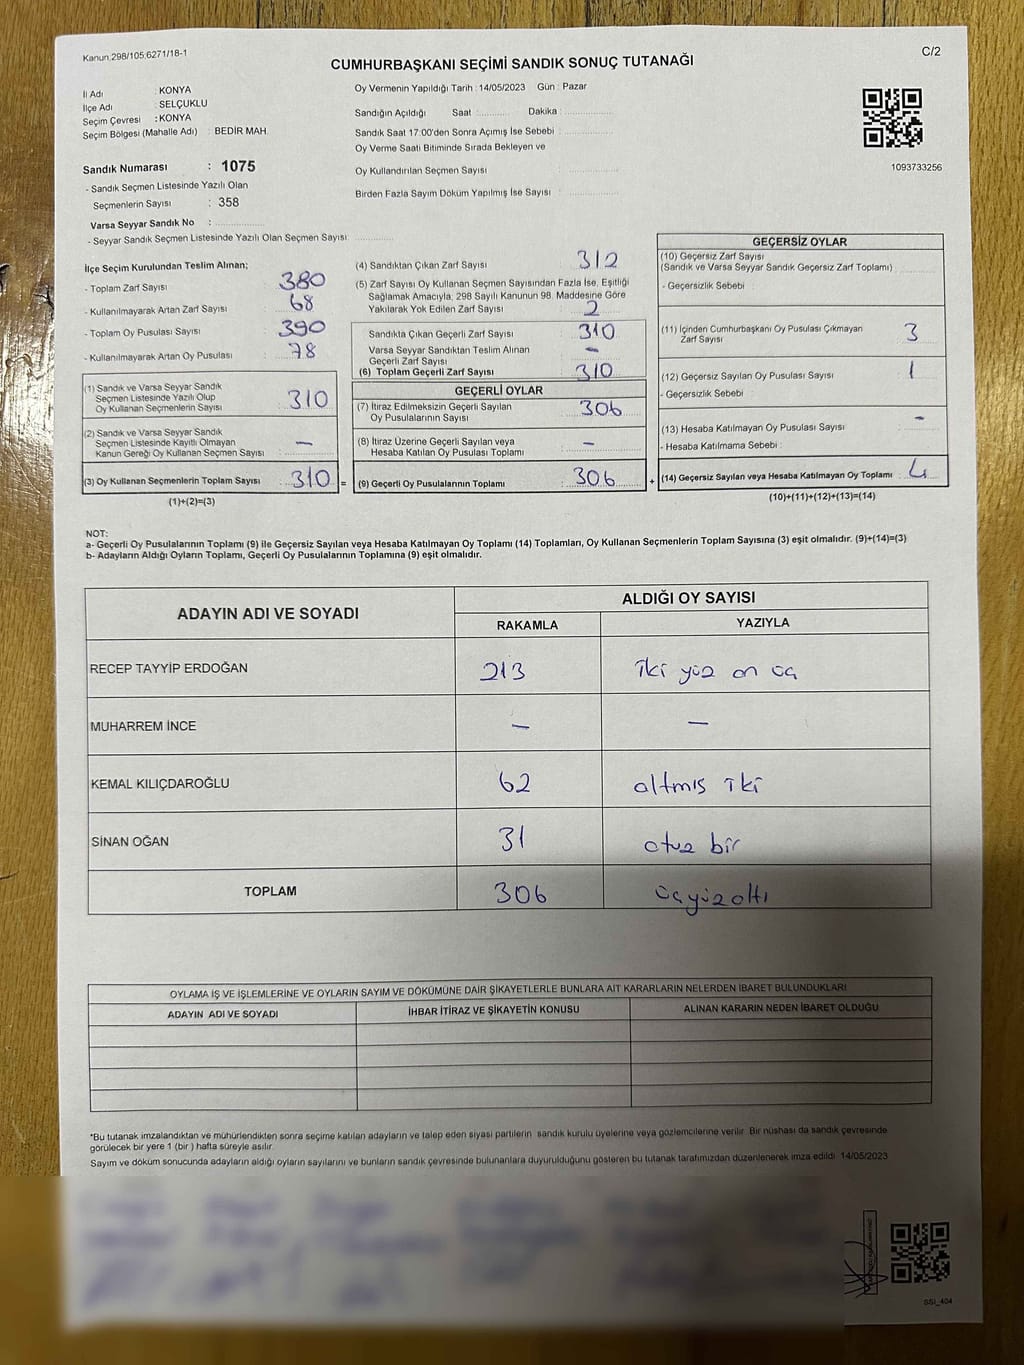 Kanun.298/105,6271/18-1
C/2
CUMHURBAŞKANI SEÇİMİ SANDIK SONUÇ TUTANAĞI
İl Adı : KONYA
İlçe Adı : SELÇUKLU
Seçim Çevresi : KONYA
Seçim Bölgesi (Mahalle Adı) : BEDİR MAH.
Sandık Numarası : 1075
- Sandık Seçmen Listesinde Yazılı Olan
Seçmenlerin Sayısı : 358
Varsa Seyyar Sandık No :
- Seyyar Sandık Seçmen Listesinde Yazılı Olan Seçmen Sayısı:
Oy Vermenin Yapıldığı Tarih : 14/05/2023 Gün : Pazar
Sandığın Açıldığı Saat : Dakika :
Sandık Saat 17:00'den Sonra Açımış İse Sebebi :
Oy Verme Saati Bitiminde Sırada Bekleyen ve
Oy Kullandırılan Seçmen Sayısı
Birden Fazla Sayım Döküm Yapılmış İse Sayısı :
1093733256
İlçe Seçim Kurulundan Teslim Alınan;
- Toplam Zarf Sayısı : 380
- Kullanılmayarak Artan Zarf Sayısı : 68
- Toplam Oy Pusulası Sayısı : 390
- Kullanılmayarak Artan Oy Pusulası : 78
(1) Sandık ve Varsa Seyyar Sandık
Seçmen Listesinde Yazılı Olup
Oy Kullanan Seçmenlerin Sayısı : 310
(2) Sandık ve Varsa Seyyar Sandık
Seçmen Listesinde Kayıtlı Olmayan
Kanun Gereği Oy Kullanan Seçmen Sayısı : —
(3) Oy Kullanan Seçmenlerin Toplam Sayısı : 310 =
(1)+(2)=(3)
(4) Sandıktan Çıkan Zarf Sayısı : 312
(5) Zarf Sayısı Oy Kullanan Seçmen Sayısından Fazla İse, Eşitliği
Sağlamak Amacıyla, 298 Sayılı Kanunun 98. Maddesine Göre
Yakılarak Yok Edilen Zarf Sayısı : 2
Sandıkta Çıkan Geçerli Zarf Sayısı : 310
Varsa Seyyar Sandıktan Teslim Alınan
Geçerli Zarf Sayısı : —
(6) Toplam Geçerli Zarf Sayısı : 310
GEÇERLİ OYLAR
(7) İtiraz Edilmeksizin Geçerli Sayılan
Oy Pusulalarının Sayısı : 306
(8) İtiraz Üzerine Geçerli Sayılan veya
Hesaba Katılan Oy Pusulası Toplamı : —
(9) Geçerli Oy Pusulalarının Toplamı : 306 +
GEÇERSİZ OYLAR
(10) Geçersiz Zarf Sayısı
(Sandık ve Varsa Seyyar Sandık Geçersiz Zarf Toplamı)
- Geçersizlik Sebebi :
(11) İçinden Cumhurbaşkanı Oy Pusulası Çıkmayan
Zarf Sayısı : 3
(12) Geçersiz Sayılan Oy Pusulası Sayısı : 1
- Geçersizlik Sebebi :
(13) Hesaba Katılmayan Oy Pusulası Sayısı : -
- Hesaba Katılmama Sebebi :
(14) Geçersiz Sayılan veya Hesaba Katılmayan Oy Toplamı : 4
(10)+(11)+(12)+(13)=(14)
NOT:
a- Geçerli Oy Pusulalarının Toplamı (9) ile Geçersiz Sayılan veya Hesaba Katılmayan Oy Toplamı (14) Toplamları, Oy Kullanan Seçmenlerin Toplam Sayısına (3) eşit olmalıdır. (9)+(14)=(3)
b- Adayların Aldığı Oyların Toplamı, Geçerli Oy Pusulalarının Toplamına (9) eşit olmalıdır.
ADAYIN ADI VE SOYADI
ALDIĞI OY SAYISI
RAKAMLA YAZIYLA
RECEP TAYYİP ERDOĞAN 213 iki yüz on üç
MUHARREM İNCE — —
KEMAL KILIÇDAROĞLU 62 altmış iki
SİNAN OĞAN 31 otuz bir
TOPLAM 306 üçyüzaltı
OYLAMA İŞ VE İŞLEMLERİNE VE OYLARIN SAYIM VE DÖKÜMÜNE DAİR ŞİKAYETLERLE BUNLARA AİT KARARLARIN NELERDEN İBARET BULUNDUKLARI
ADAYIN ADI VE SOYADI İHBAR İTİRAZ VE ŞİKAYETİN KONUSU ALINAN KARARIN NEDEN İBARET OLDUĞU
*Bu tutanak imzalandıktan ve mühürlendikten sonra seçime katılan adayların ve talep eden siyasi partilerin sandık kurulu üyelerine veya gözlemcilerine verilir. Bir nüshası da sandık çevresinde
görülecek bir yere 1 (bir ) hafta süreyle asılır.
Sayım ve döküm sonucunda adayların aldığı oyların sayılarını ve bunların sandık çevresinde bulunanlara duyurulduğunu gösteren bu tutanak tarafımızdan düzenlenerek imza edildi. 14/05/2023
SSI_404